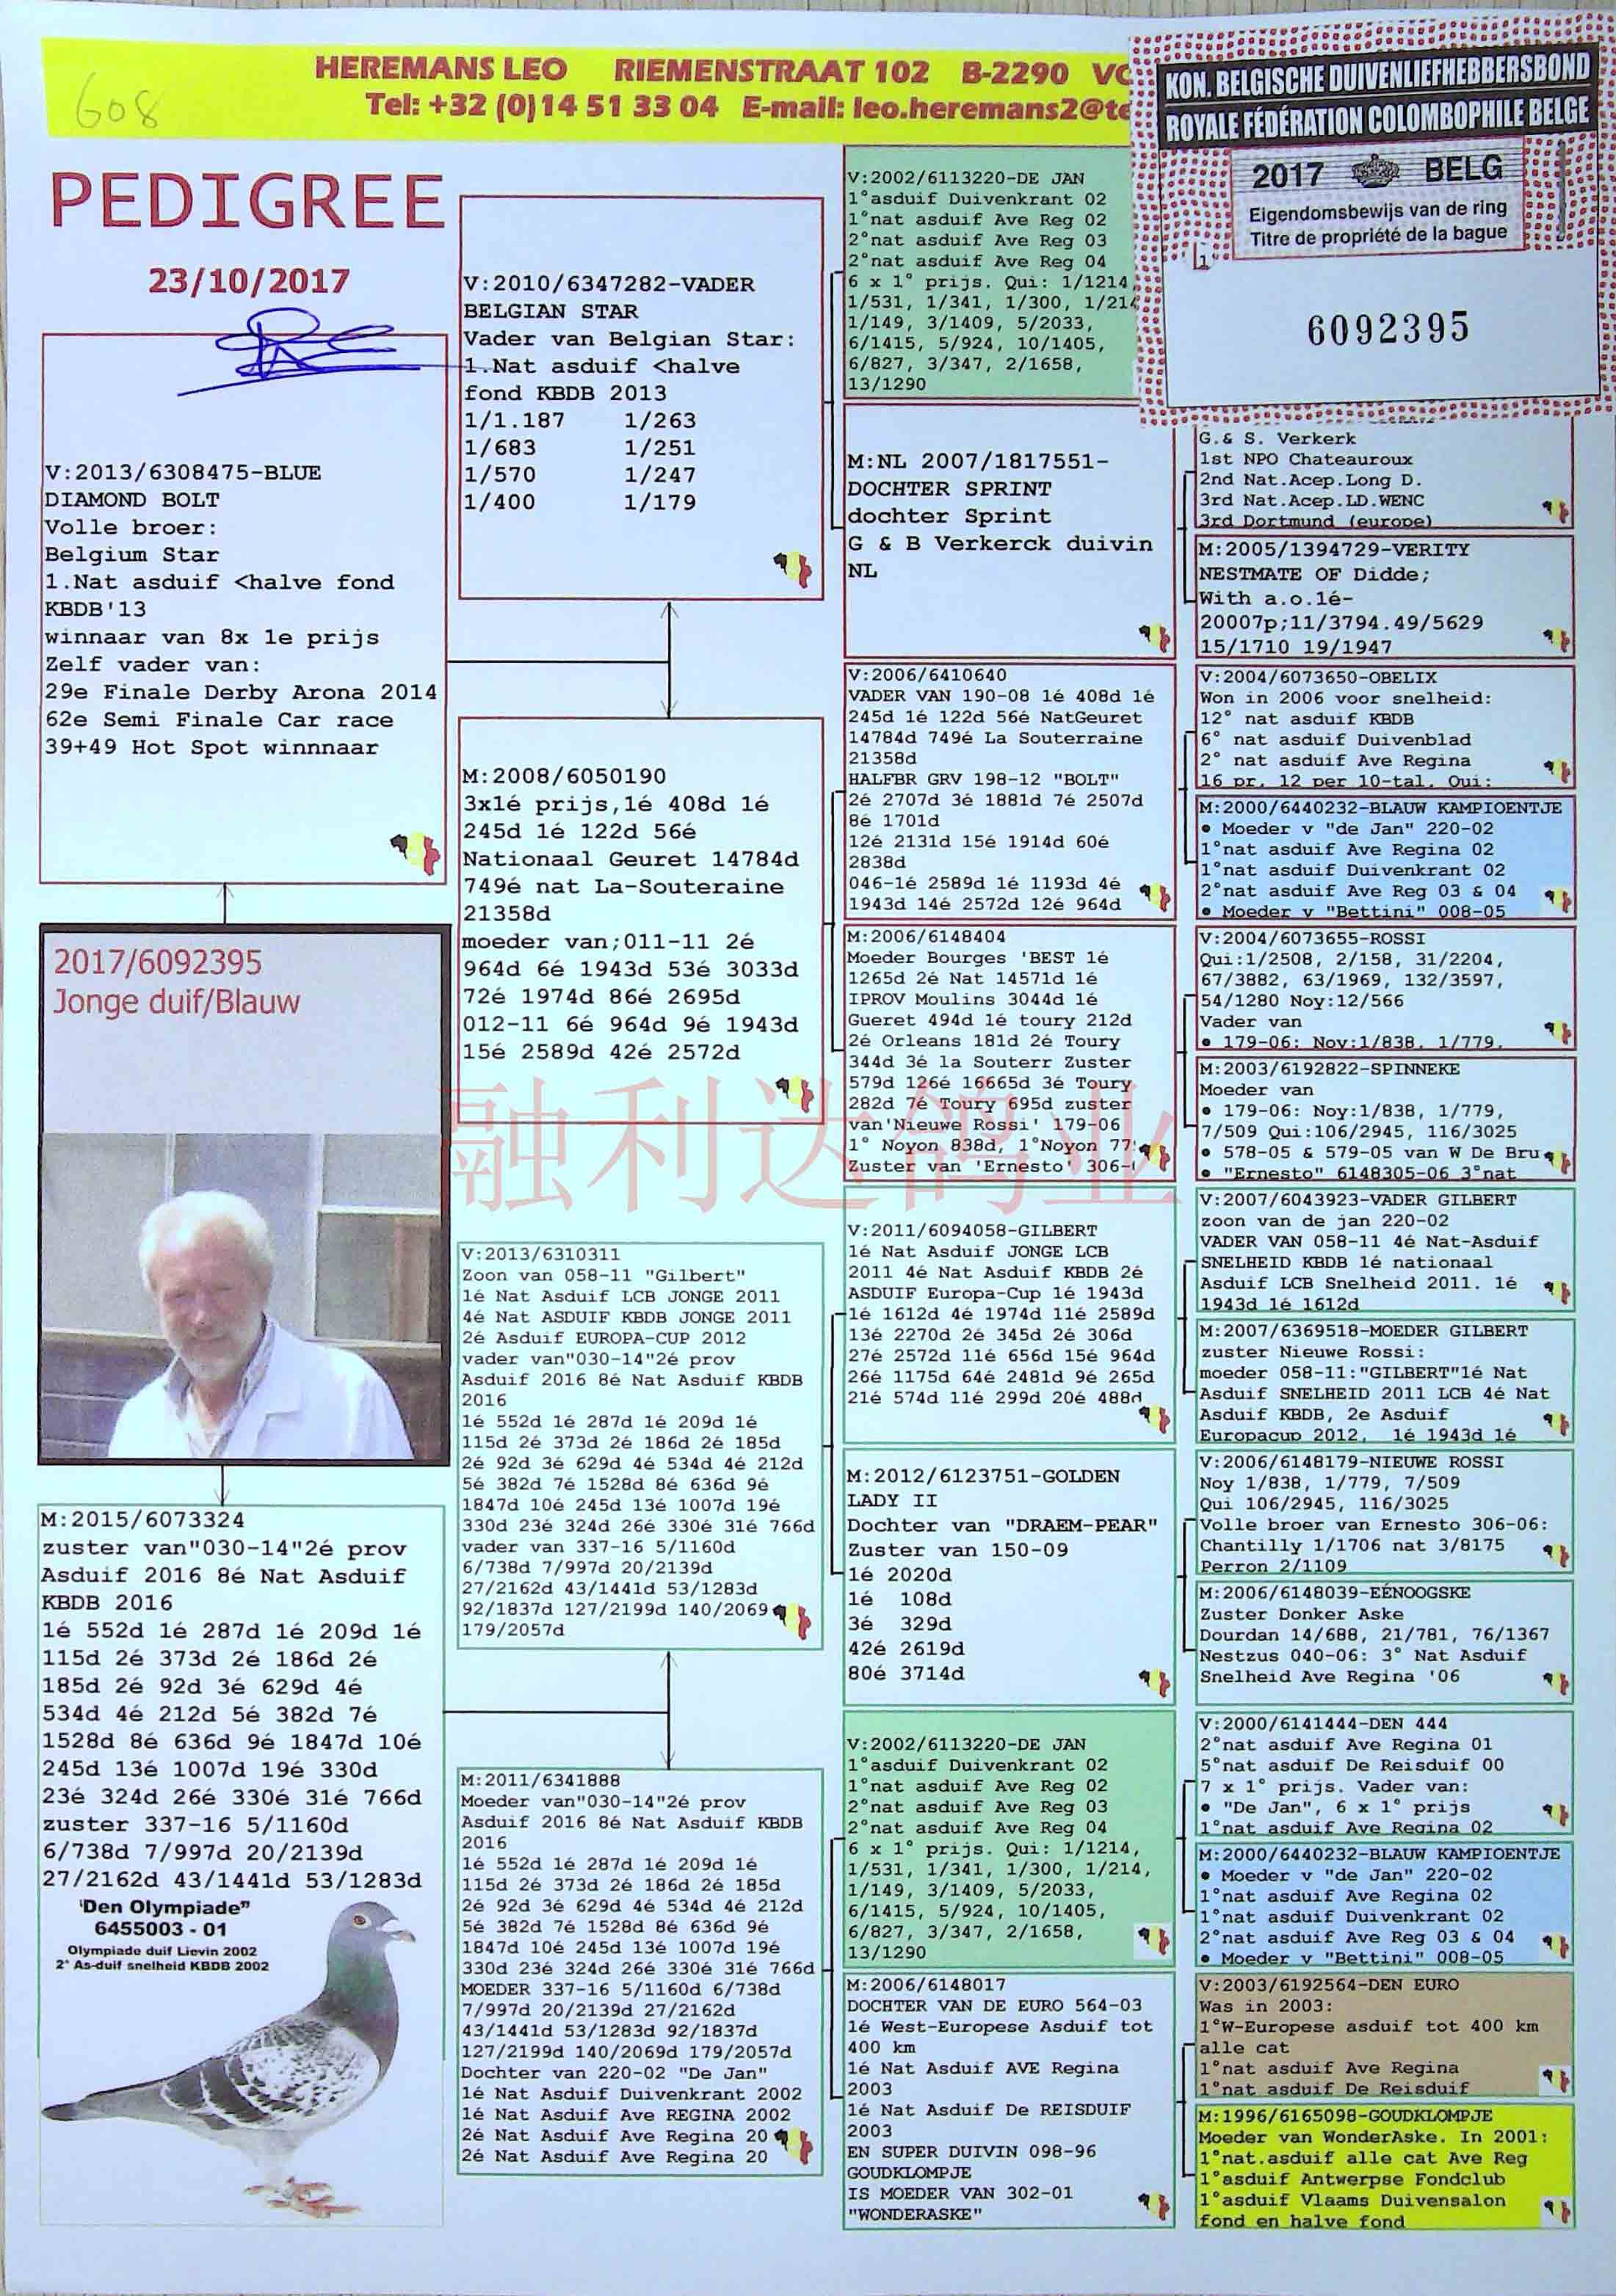 HEREMANS LEO RIEMENSTRAAT 102 B-2290
Tel: +32 (0)14 51 33 04 E-mail: leo.heremans2@te
608
KON. BELGISCHE DUIVENLIEFHEBBERSBOND
ROYALE FÉDÉRATION COLOMBOPHILE BELGE
2017 BELG
Eigendomsbewijs van de ring
Titre de propriété de la bague
1
6092395
PEDIGREE
23/10/2017
V:2013/6308475-BLUE
DIAMOND BOLT
Volle broer:
Belgium Star
1.Nat asduif <halve fond
KBDB'13
winnaar van 8x 1e prijs
Zelf vader van:
29e Finale Derby Arona 2014
62e Semi Finale Car race
39+49 Hot Spot winnnaar
2017/6092395
Jonge duif/Blauw
M:2015/6073324
zuster van"030-14"2é prov
Asduif 2016 8é Nat Asduif
KBDB 2016
1é 552d 1é 287d 1é 209d 1é
115d 2é 373d 2é 186d 2é
185d 2é 92d 3é 629d 4é
534d 4é 212d 5é 382d 7é
1528d 8é 636d 9é 1847d 10é
245d 13é 1007d 19é 330d
23é 324d 26é 330é 31é 766d
zuster 337-16 5/1160d
6/738d 7/997d 20/2139d
27/2162d 43/1441d 53/1283d
'Den Olympiade"
6455003 - 01
Olympiade duif Lievin 2002
2° As-duif snelheid KBDB 2002
V:2010/6347282-VADER
BELGIAN STAR
Vader van Belgian Star:
1.Nat asduif <halve
fond KBDB 2013
1/1.187 1/263
1/683 1/251
1/570 1/247
1/400 1/179
M:2008/6050190
3x1é prijs,1é 408d 1é
245d 1é 122d 56é
Nationaal Geuret 14784d
749é nat La-Souteraine
21358d
moeder van;011-11 2é
964d 6é 1943d 53é 3033d
72é 1974d 86é 2695d
012-11 6é 964d 9é 1943d
15é 2589d 42é 2572d
V:2013/6310311
Zoon van 058-11 "Gilbert"
1é Nat Asduif LCB JONGE 2011
4é Nat ASDUIF KBDB JONGE 2011
2é Asduif EUROPA-CUP 2012
vader van"030-14"2é prov
Asduif 2016 8é Nat Asduif KBDB
2016
1é 552d 1é 287d 1é 209d 1é
115d 2é 373d 2é 186d 2é 185d
2é 92d 3é 629d 4é 534d 4é 212d
5é 382d 7é 1528d 8é 636d 9é
1847d 10é 245d 13é 1007d 19é
330d 23é 324d 26é 330é 31é 766d
vader van 337-16 5/1160d
6/738d 7/997d 20/2139d
27/2162d 43/1441d 53/1283d
92/1837d 127/2199d 140/2069
179/2057d
M:2011/6341888
Moeder van"030-14"2é prov
Asduif 2016 8é Nat Asduif KBDB
2016
1é 552d 1é 287d 1é 209d 1é
115d 2é 373d 2é 186d 2é 185d
2é 92d 3é 629d 4é 534d 4é 212d
5é 382d 7é 1528d 8é 636d 9é
1847d 10é 245d 13é 1007d 19é
330d 23é 324d 26é 330é 31é 766d
MOEDER 337-16 5/1160d 6/738d
7/997d 20/2139d 27/2162d
43/1441d 53/1283d 92/1837d
127/2199d 140/2069d 179/2057d
Dochter van 220-02 "De Jan"
1é Nat Asduif Duivenkrant 2002
1é Nat Asduif Ave REGINA 2002
2é Nat Asduif Ave Regina 20
2é Nat Asduif Ave Regina 20
V:2002/6113220-DE JAN
1°asduif Duivenkrant 02
1°nat asduif Ave Reg 02
2°nat asduif Ave Reg 03
2°nat asduif Ave Reg 04
6 x 1° prijs. Qui: 1/1214,
1/531, 1/341, 1/300, 1/214
1/149, 3/1409, 5/2033,
6/1415, 5/924, 10/1405,
6/827, 3/347, 2/1658,
13/1290
M:NL 2007/1817551-
DOCHTER SPRINT
dochter Sprint
G & B Verkerck duivin
NL
V:2006/6410640
VADER VAN 190-08 1é 408d 1é
245d 1é 122d 56é NatGeuret
14784d 749é La Souterraine
21358d
HALFBR GRV 198-12 "BOLT"
2é 2707d 3é 1881d 7é 2507d
8é 1701d
12é 2131d 15é 1914d 60é
2838d
046-1é 2589d 1é 1193d 4é
1943d 14é 2572d 12é 964d
M:2006/6148404
Moeder Bourges 'BEST 1é
1265d 2é Nat 14571d 1é
IPROV Moulins 3044d 1é
Gueret 494d 1é toury 212d
2é Orleans 181d 2é Toury
344d 3é la Souterr Zuster
579d 126é 16665d 3é Toury
282d 7é Toury 695d zuster
van'Nieuwe Rossi' 179-06
1° Noyon 838d, 1°Noyon 77
Zuster van 'Ernesto' 306-
V:2011/6094058-GILBERT
1é Nat Asduif JONGE LCB
2011 4é Nat Asduif KBDB 2é
ASDUIF Europa-Cup 1é 1943d
1é 1612d 4é 1974d 11é 2589d
13é 2270d 2é 345d 2é 306d
27é 2572d 11é 656d 15é 964d
26é 1175d 64é 2481d 9é 265d
21é 574d 11é 299d 20é 488d
M:2012/6123751-GOLDEN
LADY II
Dochter van "DRAEM-PEAR"
Zuster van 150-09
1é 2020d
1é 108d
3é 329d
42é 2619d
80é 3714d
V:2002/6113220-DE JAN
1°asduif Duivenkrant 02
1°nat asduif Ave Reg 02
2°nat asduif Ave Reg 03
2°nat asduif Ave Reg 04
6 x 1° prijs. Qui: 1/1214,
1/531, 1/341, 1/300, 1/214,
1/149, 3/1409, 5/2033,
6/1415, 5/924, 10/1405,
6/827, 3/347, 2/1658,
13/1290
M:2006/6148017
DOCHTER VAN DE EURO 564-03
1é West-Europese Asduif tot
400 km
1é Nat Asduif AVE Regina
2003
1é Nat Asduif De REISDUIF
2003
EN SUPER DUIVIN 098-96
GOUDKLOMPJE
IS MOEDER VAN 302-01
"WONDERASKE"
G.& S. Verkerk
1st NPO Chateauroux
2nd Nat.Acep.Long D.
3rd Nat.Acep.LD.WENC
3rd Dortmund (europe)
M:2005/1394729-VERITY
NESTMATE OF Didde;
With a.o.1é-
20007p;11/3794.49/5629
15/1710 19/1947
V:2004/6073650-OBELIX
Won in 2006 voor snelheid:
12° nat asduif KBDB
6° nat asduif Duivenblad
2° nat asduif Ave Regina
16 pr, 12 per 10-tal. Qui:
M:2000/6440232-BLAUW KAMPIOENTJE
• Moeder v "de Jan" 220-02
1°nat asduif Ave Regina 02
1°nat asduif Duivenkrant 02
2°nat asduif Ave Reg 03 & 04
• Moeder v "Bettini" 008-05
V:2004/6073655-ROSSI
Qui:1/2508, 2/158, 31/2204,
67/3882, 63/1969, 132/3597,
54/1280 Noy:12/566
Vader van
• 179-06: Noy:1/838, 1/779,
M:2003/6192822-SPINNEKE
Moeder van
• 179-06: Noy:1/838, 1/779,
7/509 Qui:106/2945, 116/3025
• 578-05 & 579-05 van W De Bru
• "Ernesto" 6148305-06 3°nat
V:2007/6043923-VADER GILBERT
zoon van de jan 220-02
VADER VAN 058-11 4é Nat-Asduif
SNELHEID KBDB 1é nationaal
Asduif LCB Snelheid 2011. 1é
1943d 1é 1612d
M:2007/6369518-MOEDER GILBERT
zuster Nieuwe Rossi:
moeder 058-11:"GILBERT"1é Nat
Asduif SNELHEID 2011 LCB 4é Nat
Asduif KBDB, 2e Asduif
Europacup 2012, 1é 1943d 1é
V:2006/6148179-NIEUWE ROSSI
Noy 1/838, 1/779, 7/509
Qui 106/2945, 116/3025
Volle broer van Ernesto 306-06:
Chantilly 1/1706 nat 3/8175
Perron 2/1109
M:2006/6148039-EÉNOOGSKE
Zuster Donker Aske
Dourdan 14/688, 21/781, 76/1367
Nestzus 040-06: 3° Nat Asduif
Snelheid Ave Regina '06
V:2000/6141444-DEN 444
2°nat asduif Ave Regina 01
5°nat asduif De Reisduif 00
7 x 1° prijs. Vader van:
• "De Jan", 6 x 1° prijs
1°nat asduif Ave Regina 02
M:2000/6440232-BLAUW KAMPIOENTJE
• Moeder v "de Jan" 220-02
1°nat asduif Ave Regina 02
1°nat asduif Duivenkrant 02
2°nat asduif Ave Reg 03 & 04
• Moeder v "Bettini" 008-05
V:2003/6192564-DEN EURO
Was in 2003:
1°W-Europese asduif tot 400 km
alle cat
1°nat asduif Ave Regina
1°nat asduif De Reisduif
M:1996/6165098-GOUDKLOMPJE
Moeder van WonderAske. In 2001:
1°nat.asduif alle cat Ave Reg
1°asduif Antwerpse Fondclub
1°asduif Vlaams Duivensalon
fond en halve fond
融利达鸽业